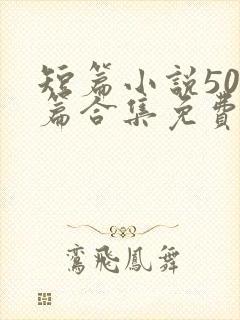 短篇小説50
篇合集免費
鸞飛鳳舞